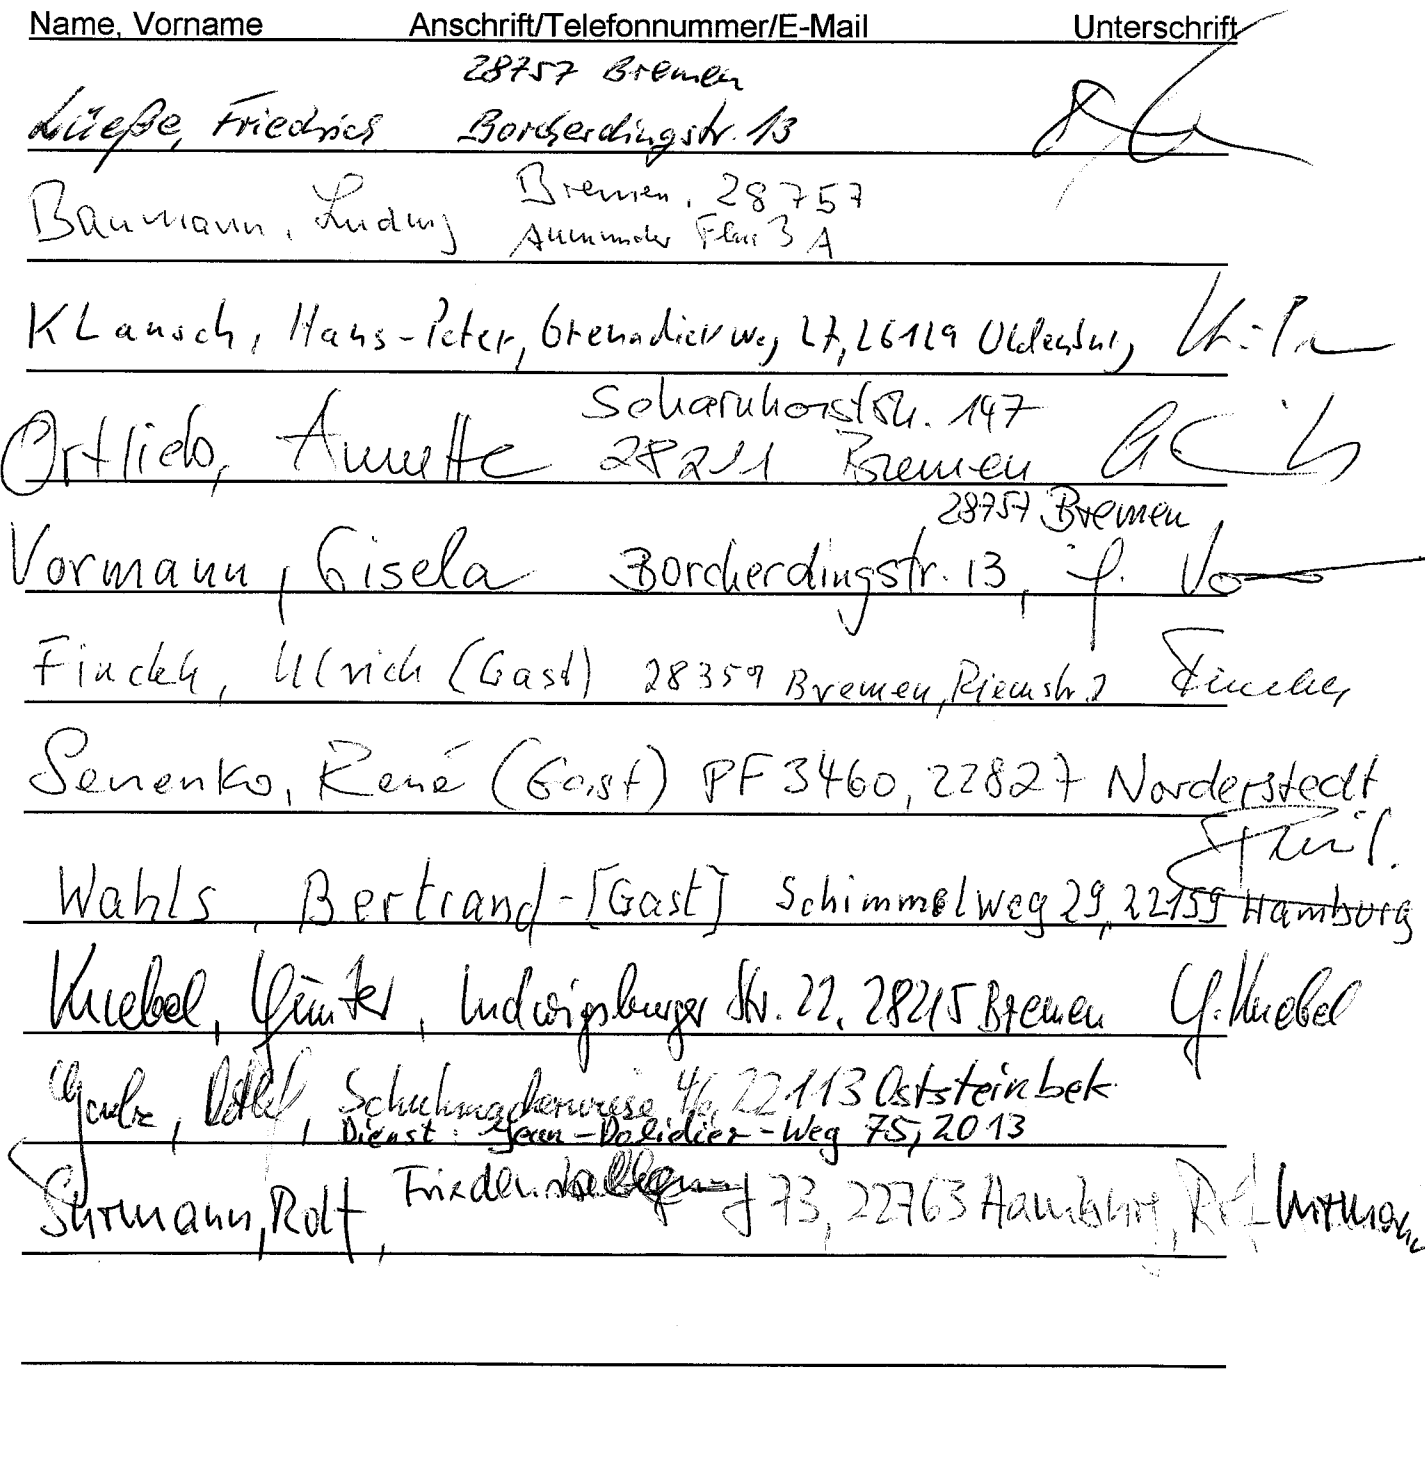 Name, Vorname Anschrift/Telefonnummer/E-Mail Unterschrift
28757 Bremen
Lüeße, Friedrich Borcherdingstr. 13
Bremen, 28757
Baumann, Ludwig Aumunder Flur 3 A
KLausch, Hans-Peter, Grenadierweg 27, 26129 Oldenburg
Scharnhorststr. 147
Ortlieb, Annette 28211 Bremen
28757 Bremen
Vormann, Gisela Borcherdingstr. 13,
Finckh, Ulrich (Gast) 28359 Bremen, Riemstr. 2 Finckh
Senenko, René (Gast) PF 3460, 22827 Norderstedt
Wahls, Bertrand - [Gast] Schimmelweg 29, 22159 Hamburg
Knebel, Günter, Ludwigsburger Str. 22, 28215 Bremen G. Knebel
Garbe, Detlef, Schuhmacherwiese 4c, 22113 Oststeinbek
Dienst: Jean-Dolidier-Weg 75, 2013
Surmann, Rolf, 73, 22763 Hamburg, Rolf Surmann